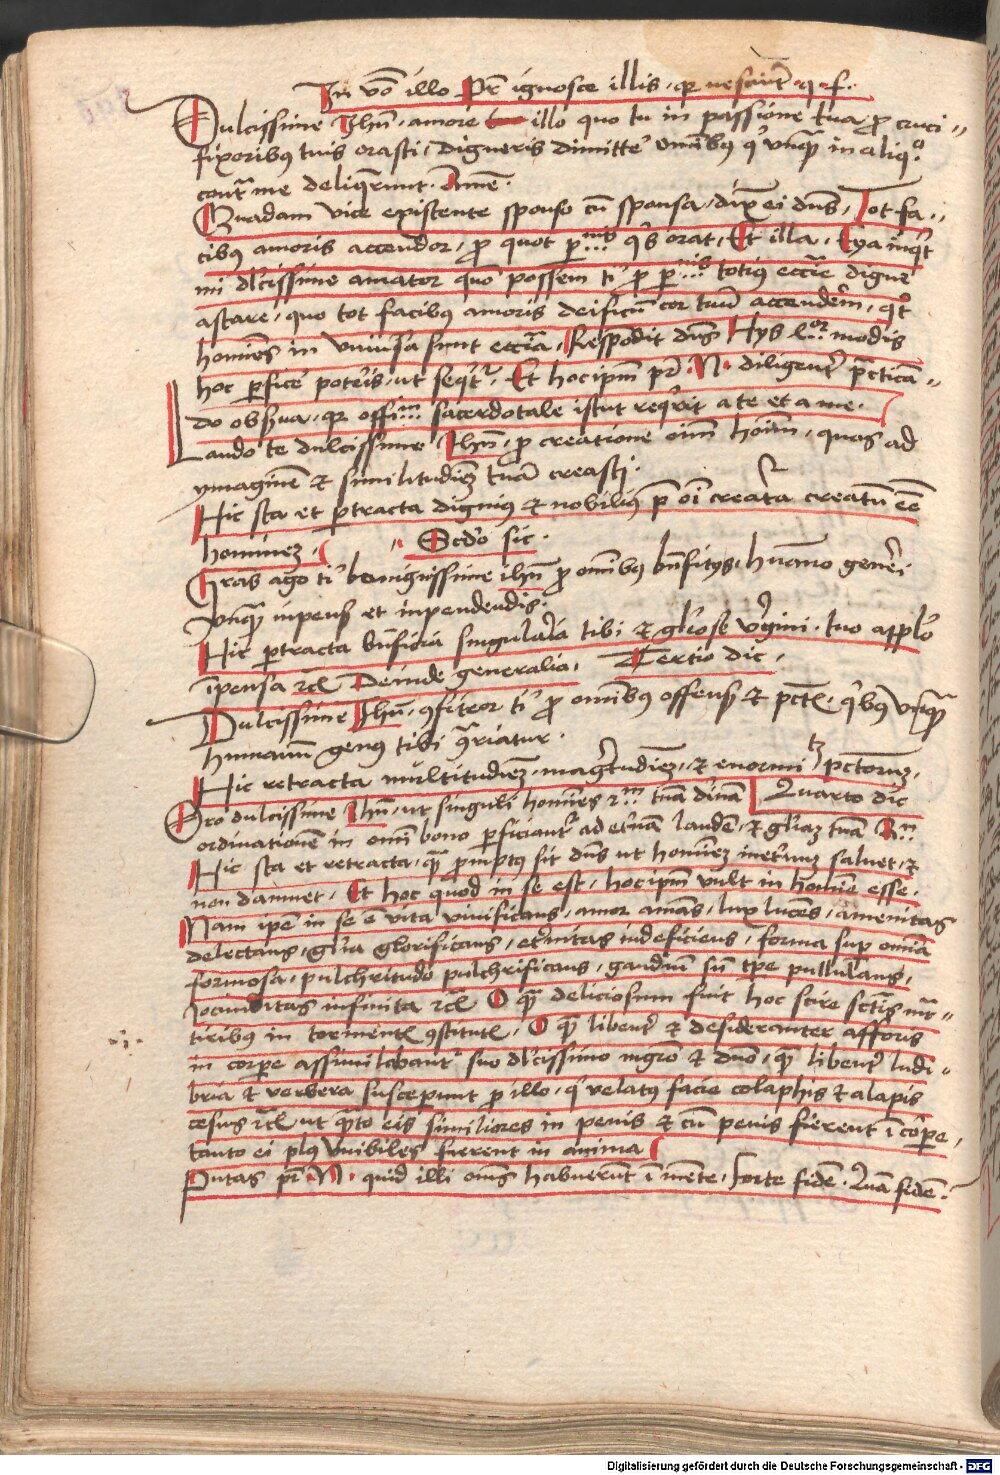 In vō illo Pr̄ ignosce illis, qr nesciūt q. f.
Dulcissime Jhū, amore illo quo tu in passione tua ꝓ cruci=
fixoribꝰ tuis orasti, digneris dimitte' omībꝰ q' vnqꝫ in aliqo
contra me deliqerunt. Amē.
Quadam vice existente sponso cū sponsa, dix ei dn̄s, Tot fa=
cibus amoris accendor, ꝓ quot qs orat, Et illa, Eya inqt
mi dlcissime amator quō possem ti' ꝓ totius eccīe digne
astare, quo tot facibus amoris deificū cor tuū accenderem, qt
homines in vniūsa sunt eccīa, Respōdit dn̄s Hys modis
hoc ꝑfice' poteris, ut seqt', Et hocipm pr̄ N. diligent' practicā=
do obẜua, qr sacerdotale istut reqrit a te et a me.
Laudo te dulcissime Jhū, ꝓ creatione oīm hoīm, quos ad
ymaginē et similitudinē tuā creasti.
Hic sta et ꝑtracta dignius et nobilius p oī creat'a creatū eē
hominez. Scd'o sic.
Gras ago ti' benignissime ihū ꝓ omībus bn̄fitijs, humano gen'i
vnqꝫ inpensis et inpendendis.
Hic ꝑtracta bn̄ficia singularia tibi et gl'iose v'gini, tuo applo
īpensa rcł Deinde generalia, Tertio dic,
Dulcissime Jhū, ꝯfiteor ti' ꝓ omībus offensis et pctis, qbꝰ vnqꝫ
humanum genus tibi ꝯt'riatur.
Hic retracta multitudinē, magnitudinē, et enormitatē pctorum,
Oro dulcissime Jhū, ut singuli homines tuā diuinā Quarto dic
ordinationē in omī bono ꝑficiant' ad et'nā laudē, et gl'iaz tuā
Hic sta et retracta, quā promptus sit dn̄s ut hominez inet'num saluet, et
non damnet, Et hoc quod in se est, hocipm vult in homīe esse.
Nam ipe in se ē vita viuificans, amor amās, lux lucēs, amenitas
delectans, gl'ia glorificans, et'nitas indeficiens, forma sup omīa
formosa, pulchritudo pulchrificans, gaudiū pullulans,
Jocunditas infinita rcł O quā deliciosum fuit hoc scire sctīs mar=
tiribus in tormentis ꝯstitutis, O quā libent' et desideranter afforis
in corpe assimilabant' suo dlcissimo mgro et dn̄o, quā libent' ludi=
bria et verbera susceperunt ꝓ illo, q' velatus facie colaphis et alapis
cesus rcł ut qnto eis similiores in penis et cū penis fierent ī corpe,
tanto ei plꝰ vnibiles fierent in anima
Putas pr̄ N. quid illi oīns habuerunt ī mente, Forte fidē. Quā fidē.
Digitalisierung gefördert durch die Deutsche Forschungsgemeinschaft - DFG